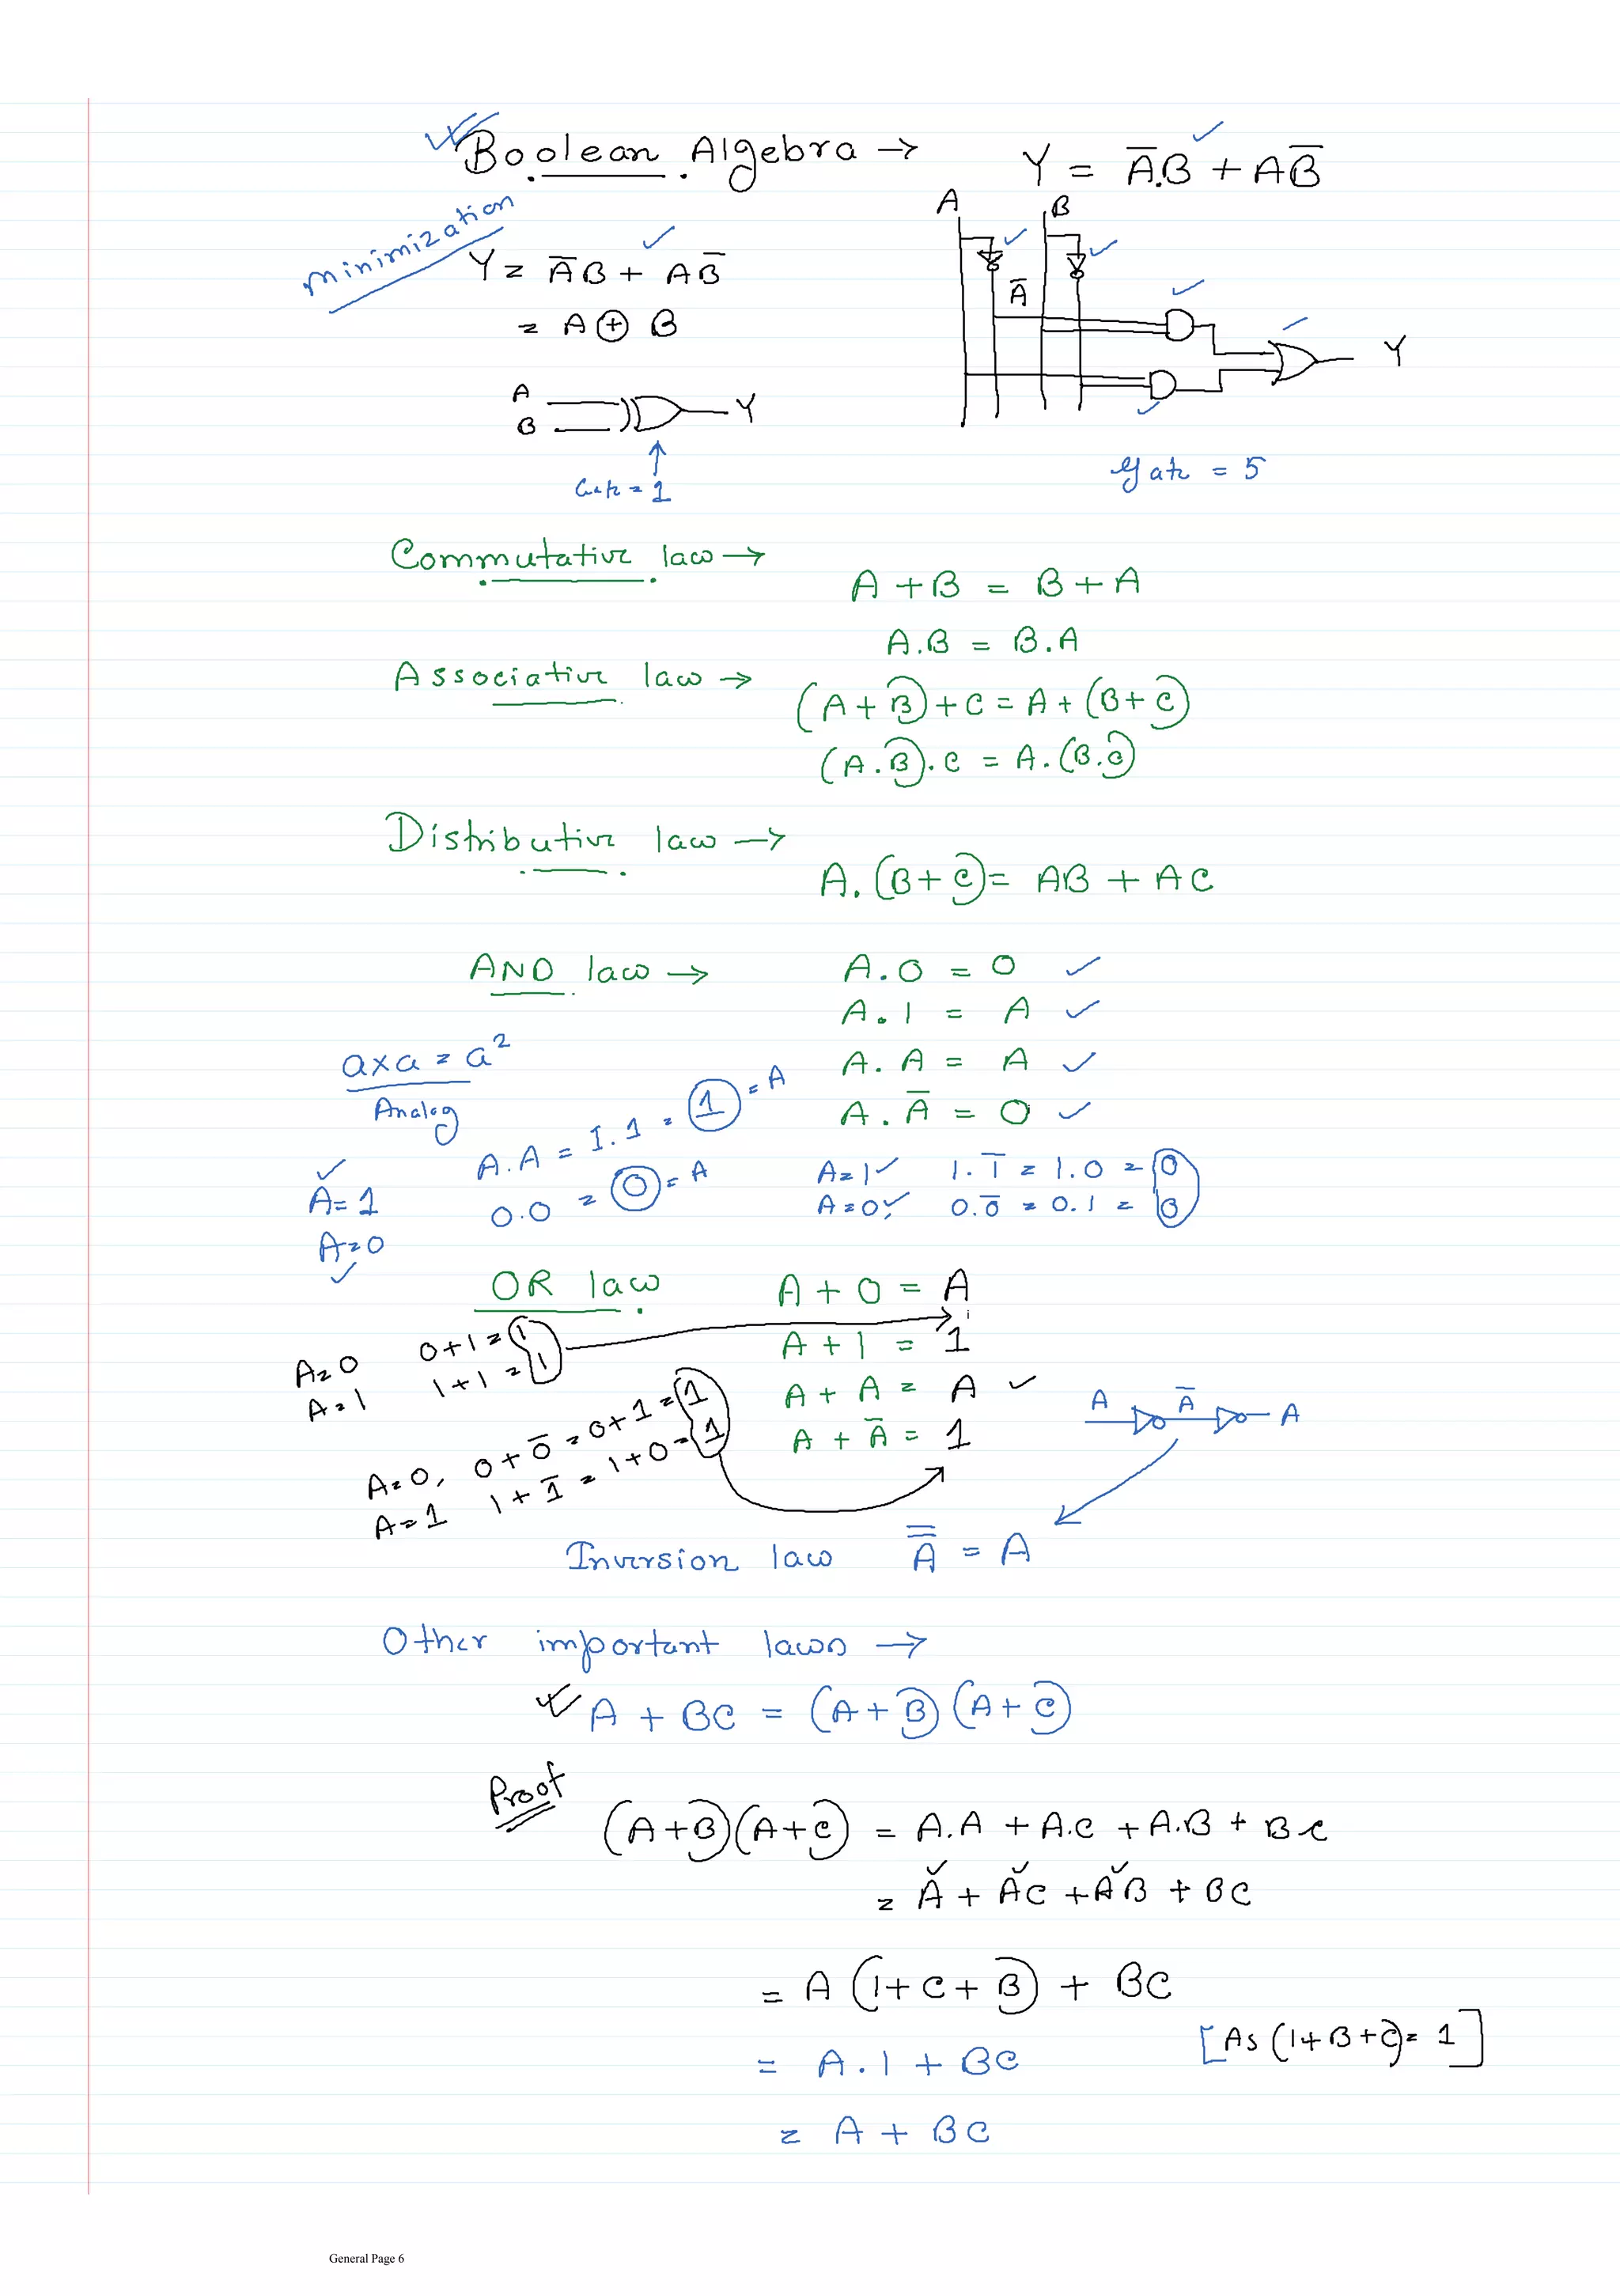 Boolean Algebra →
Y = A̅.B + AB̅
minimization
Y = A̅B + AB̅
= A ⊕ B
A B
A̅
Y
A
B
Y
Gate = 1
gate = 5
Commutative law →
A + B = B + A
A.B = B.A
Associative law →
(A + B) + C = A + (B + C)
(A.B).C = A.(B.C)
Distributive law →
A.(B + C) = AB + AC
AND law →
A.0 = 0
A.1 = A
A.A = A
A.A̅ = 0
a×a = a²
Analog
A.A = 1.1 = 1 = A
0.0 = 0 = A
A=1
A=0
A=1 1.1̅ = 1.0 = 0
A=0 0.0̅ = 0.1 = 0
OR law
A + 0 = A
A + 1 = 1
A + A = A
A + A̅ = 1
A=0 0+1 = 1
A=1 1+1 = 1
A=0, 0+0̅ = 0+1 = 1
A=1 1+1̅ = 1+0 = 1
A A̅ A
Inversion law A̿ = A
Other important laws →
A + BC = (A+B)(A+C)
Proof
(A+B)(A+C) = A.A + A.C + A.B + BC
= A + AC + AB + BC
= A(1+C+B) + BC
[As (1+B+C) = 1]
= A.1 + BC
= A + BC
General Page 6